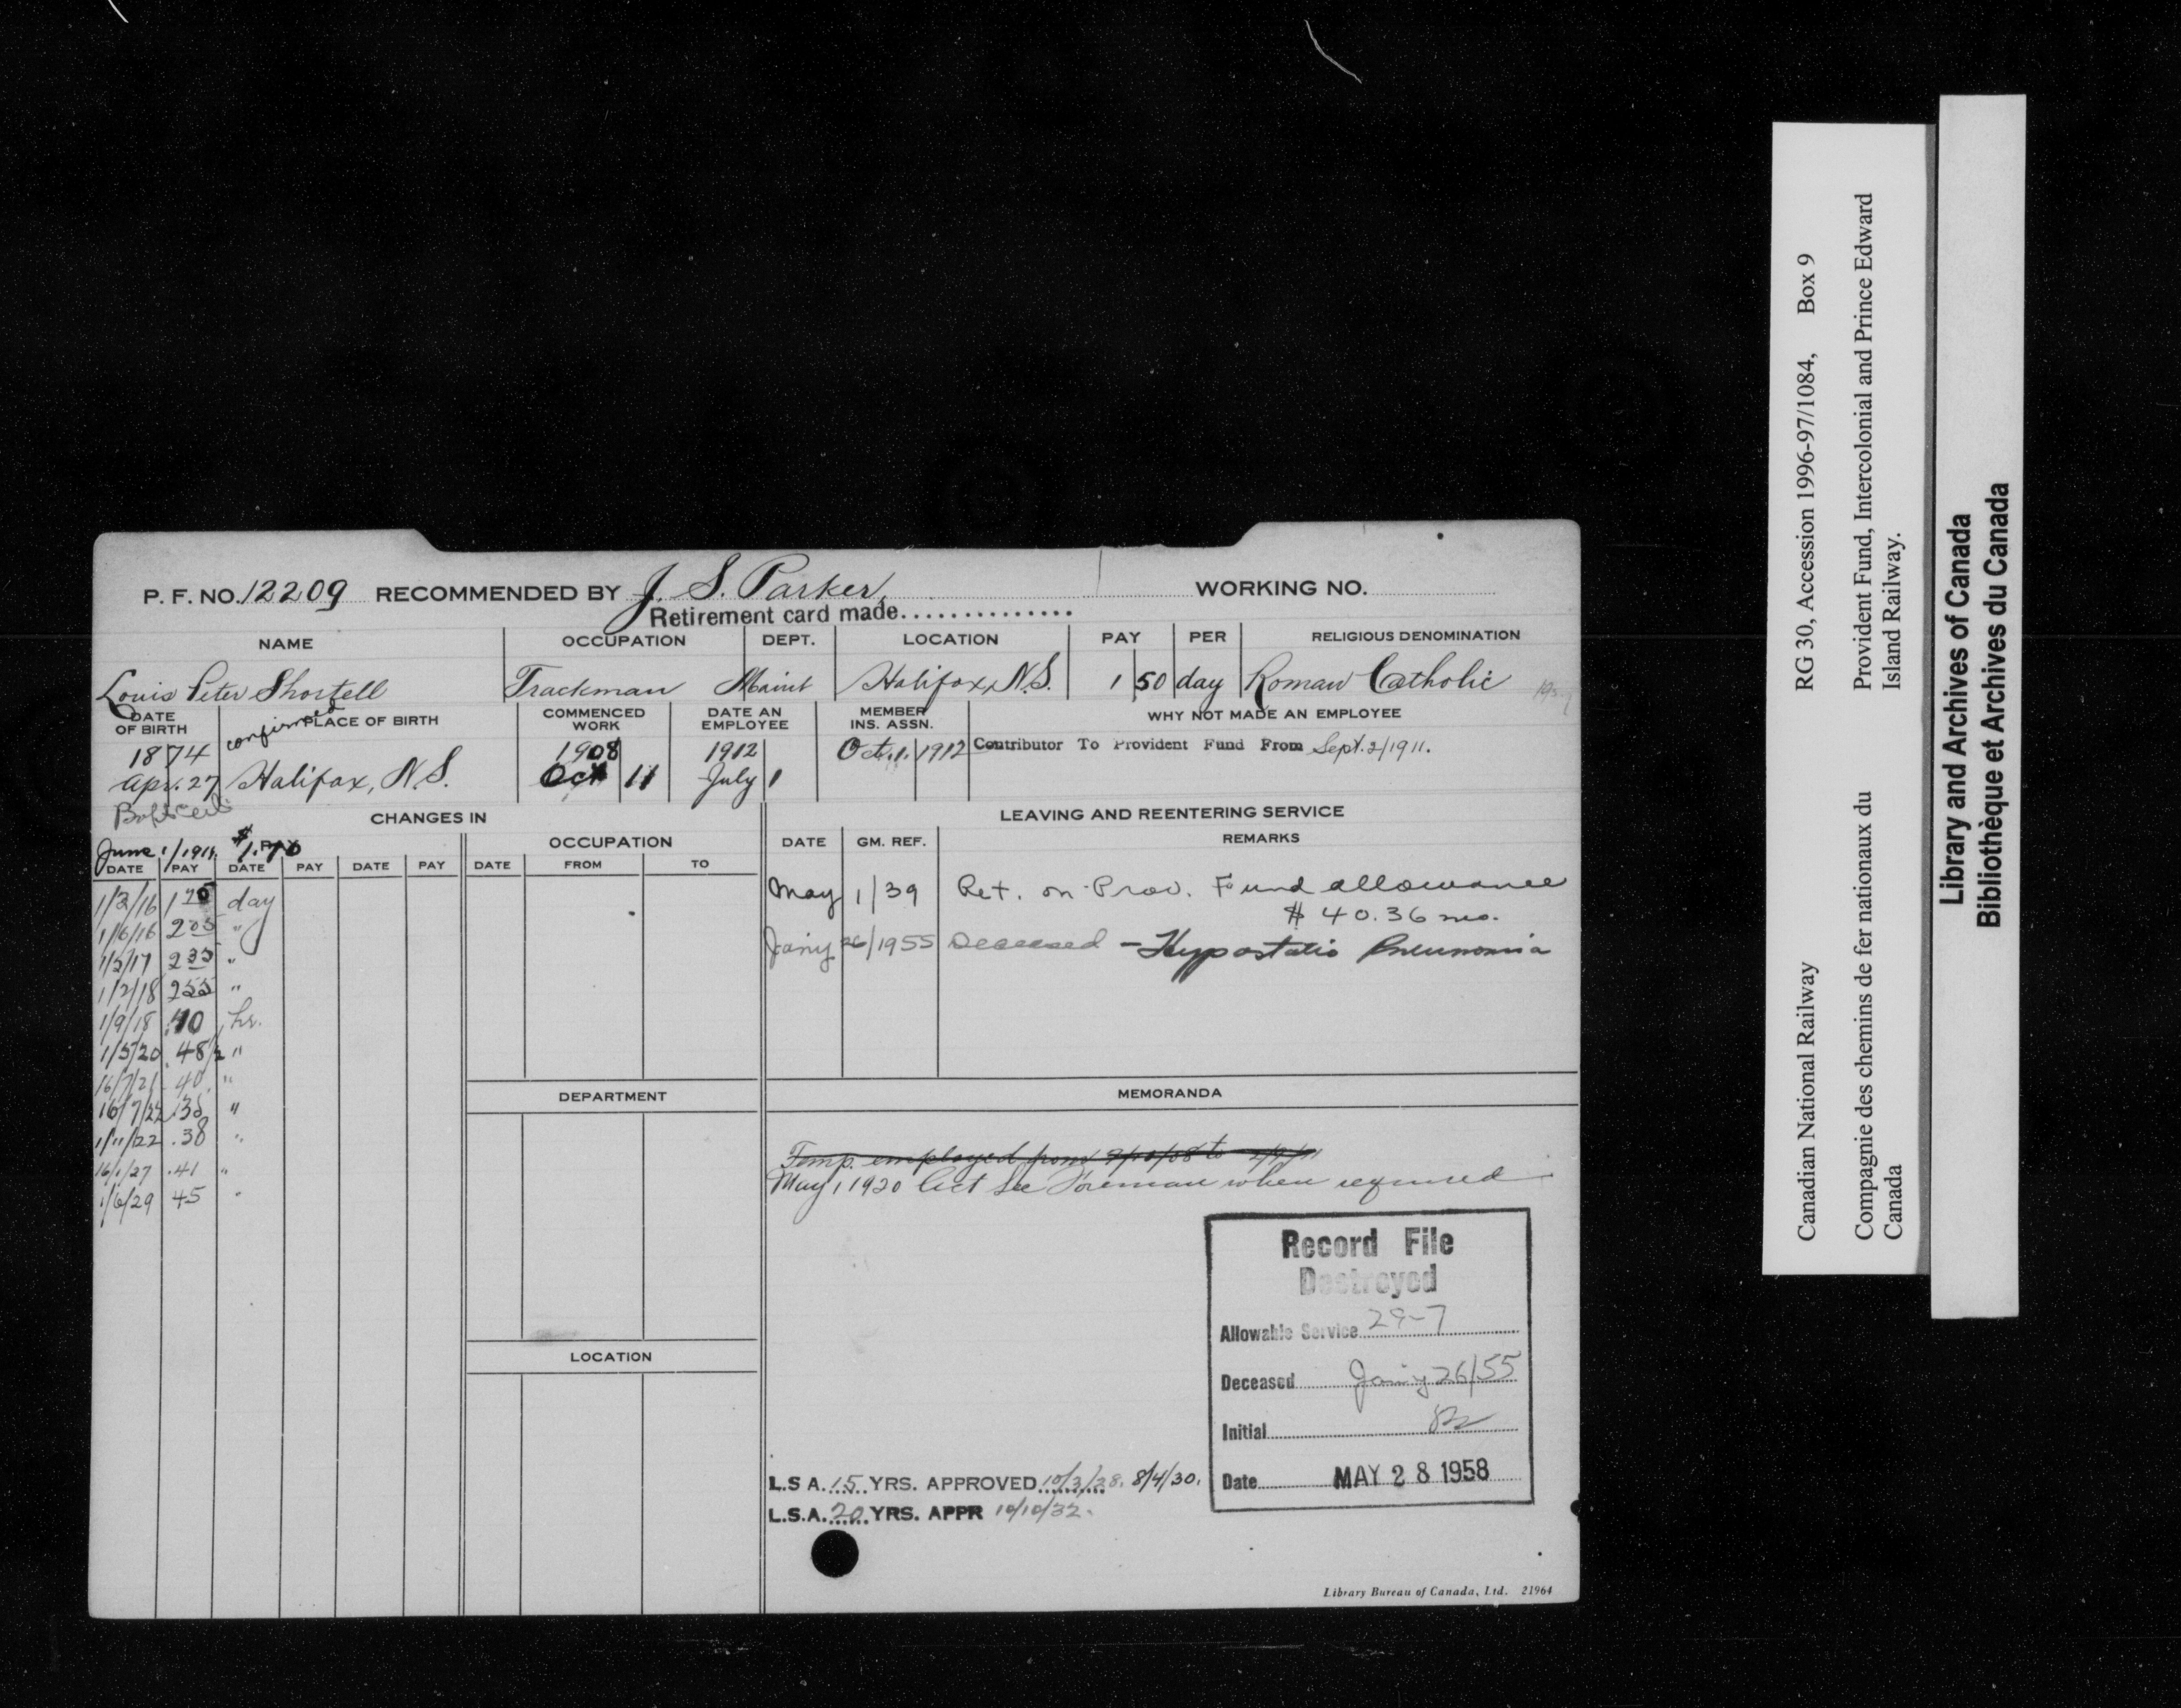 P. F. NO. 12209 RECOMMENDED BY J. S. Parker, WORKING NO.
Retirement card made..............
NAME OCCUPATION DEPT. LOCATION PAY PER RELIGIOUS DENOMINATION
Louis Peter Shortell Trackman Maint Halifax, N.S. 1 50 day Roman Catholic
DATE OF BIRTH confirmed PLACE OF BIRTH COMMENCED WORK DATE AN EMPLOYEE MEMBER INS. ASSN. WHY NOT MADE AN EMPLOYEE
1874 1908 1912 Oct. 1. 1912 Contributor To Provident Fund From Sept. 2/1911.
Apr. 27 Halifax, N.S. Oct 11 July 1
CHANGES IN LEAVING AND REENTERING SERVICE
June 1/1914 $1.70 PAY OCCUPATION DATE GM. REF. REMARKS
DATE PAY DATE PAY DATE PAY DATE FROM TO
May 1/39 Ret. on Prov. Fund allowance
$ 40.36 mo.
Jany 26/1955 Deceased - Hypostatic Pneumonia
1/3/16 1 75 day
1/6/16 2 05 "
1/5/17 2 35 "
1/2/18 2 55 "
1/9/18 .40 hr.
1/5/20 .48½ "
16/7/21 .40 "
16/7/22 .35 "
1/11/22 .38 "
16/1/27 .41 "
1/6/29 45 "
DEPARTMENT
LOCATION
MEMORANDA
Temp. employed from 9/10/08 to 2/9/11
May 1, 1920 Act Sec Foreman when required
Record File
Destroyed
Allowable Service 29-7
Deceased Jany 26/55
Initial
Date MAY 28 1958
L.S A. 15 YRS. APPROVED 10/3/28. 8/4/30.
L.S.A. 20 YRS. APPR 10/10/32.
Library Bureau of Canada, Ltd. 21964
Canadian National Railway RG 30, Accession 1996-97/1084, Box 9
Compagnie des chemins de fer nationaux du Provident Fund, Intercolonial and Prince Edward
Canada Island Railway.
Library and Archives of Canada
Bibliothèque et Archives du Canada